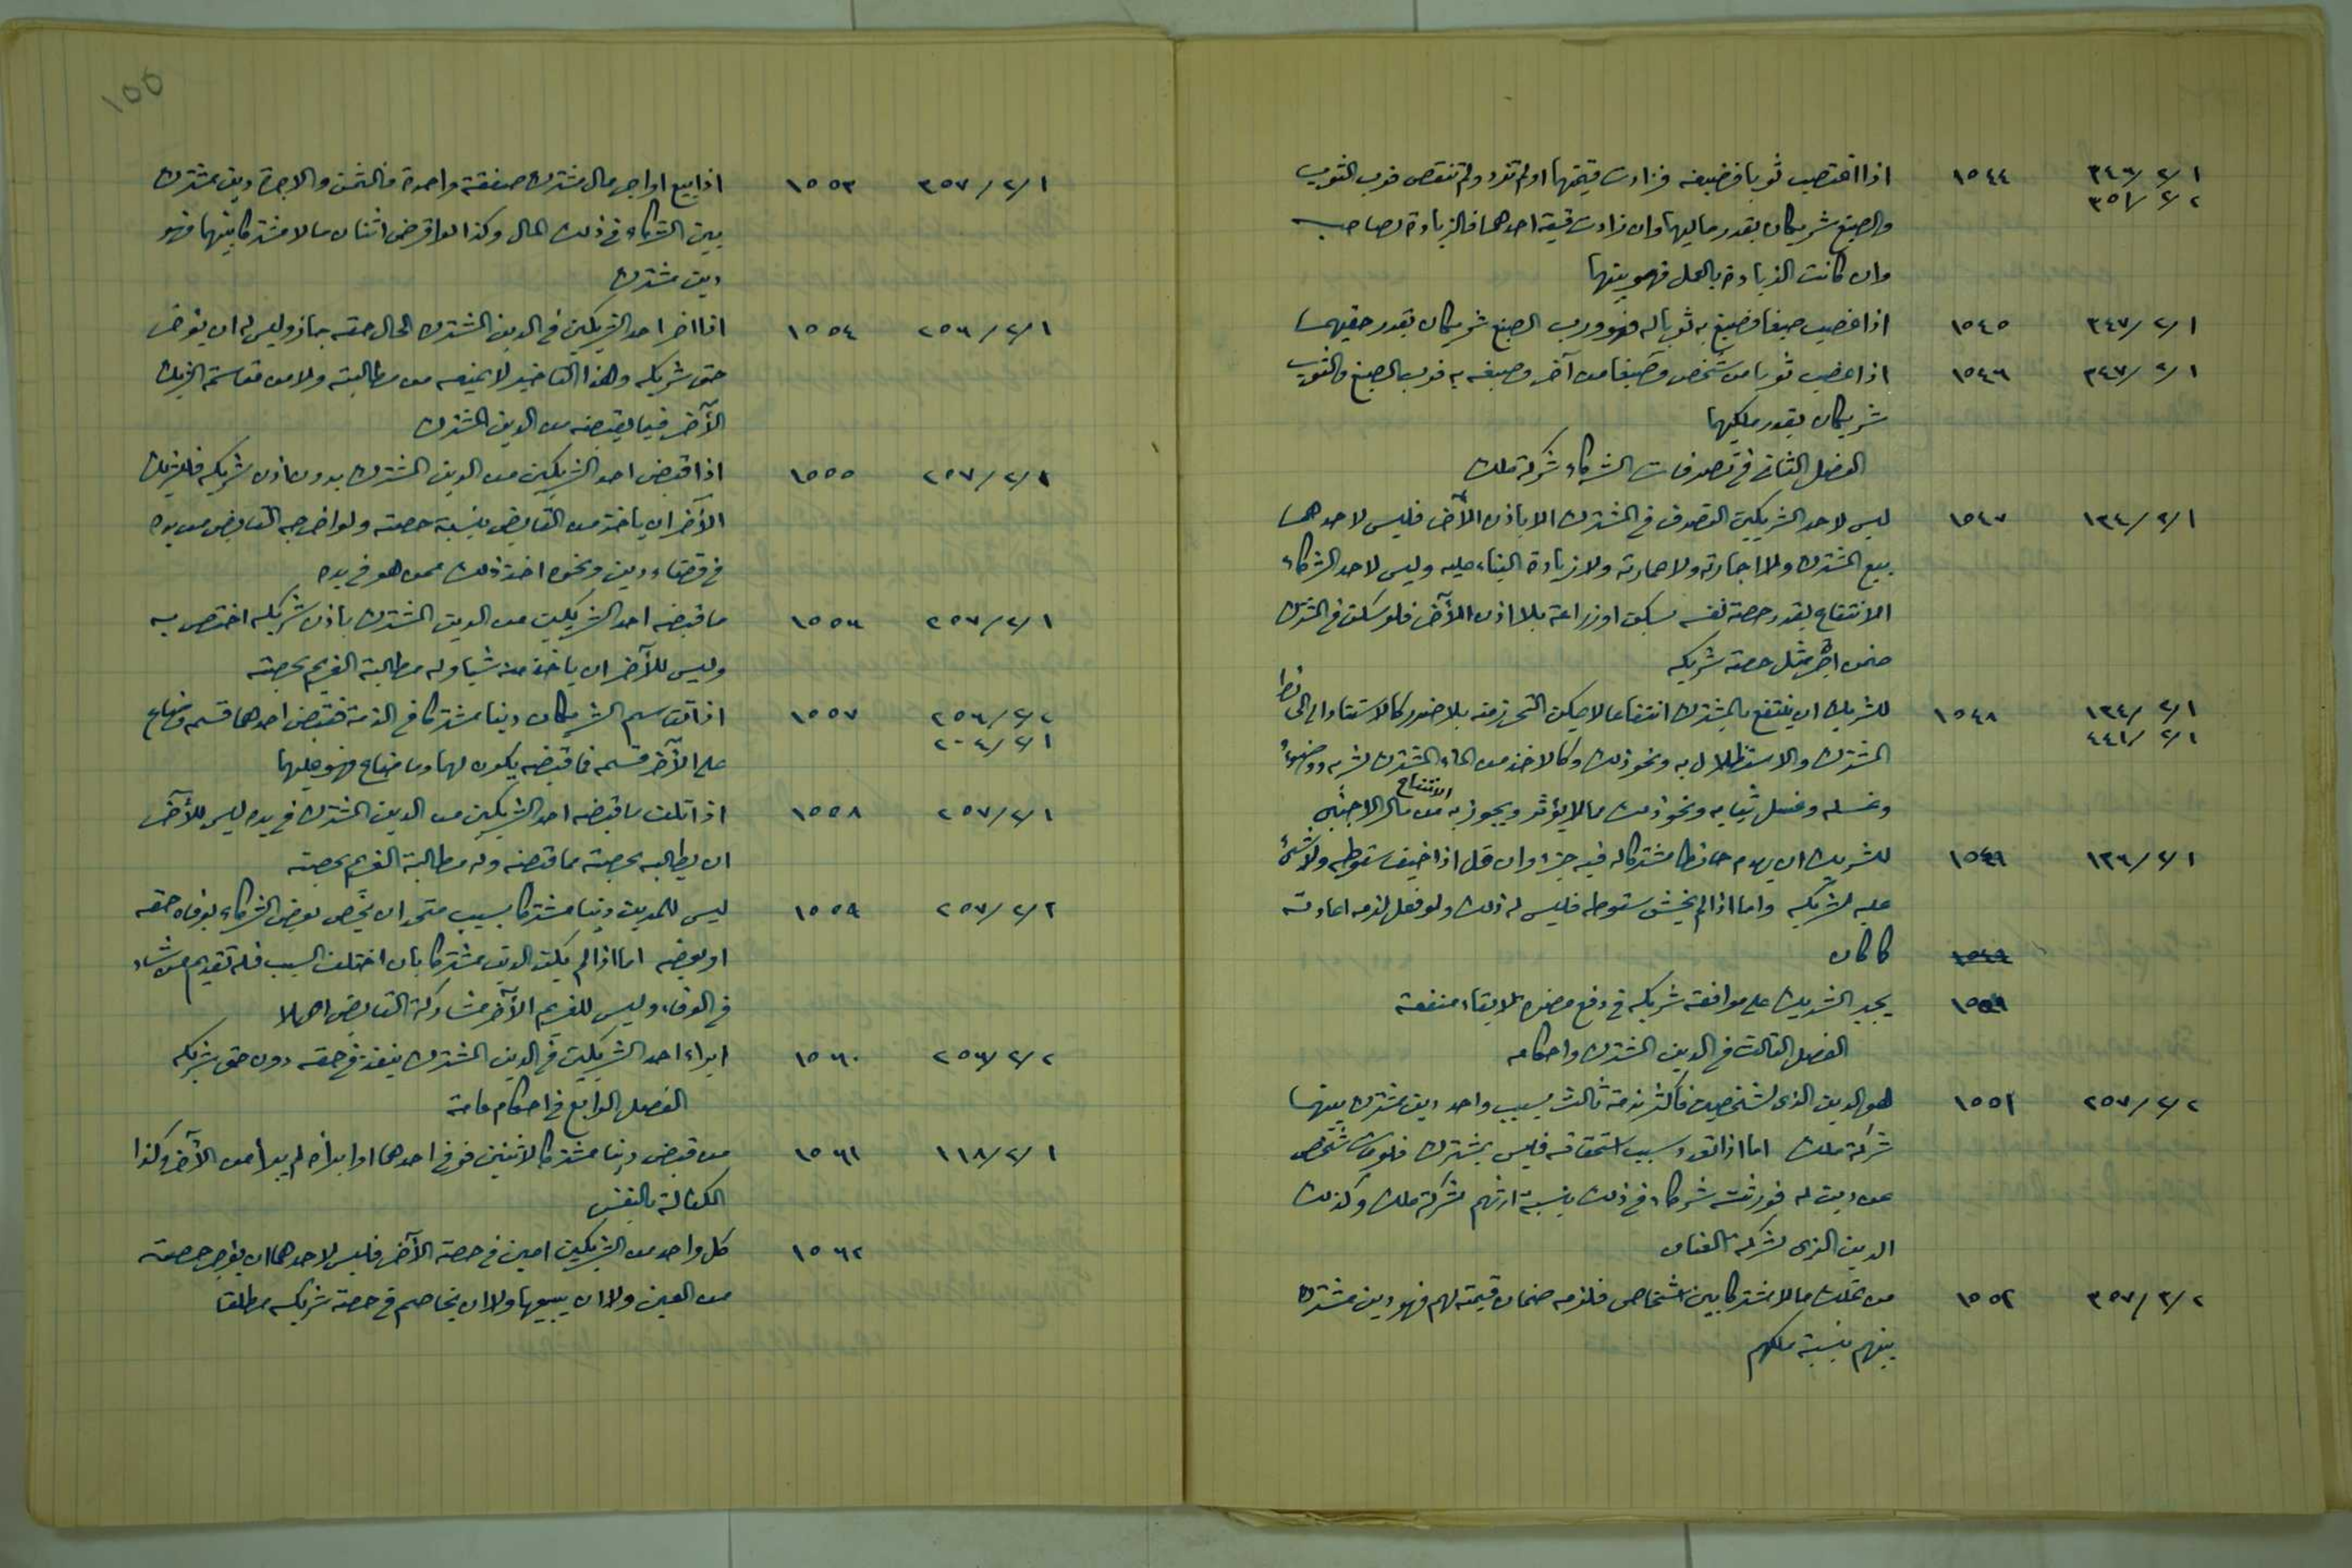 ١/٢/٣٤٦ ١٥٤٤ اذا اغتصب ثوبا فصبغه فزادت قيمتهما او لم تزد ولم تنقص فرب الثوب
٢/٢/٣٥١ والصبغ شريكان بقدر ماليهما وان زادت قيمة احدهما فالزيادة لصاحبه
وان كانت الزيادة بالعمل فهو بينهما
١/٢/٣٤٧ ١٥٤٥ اذا غصب صبغا فصبغ به ثوبا له فهو ورب الصبغ شريكان بقدر حقيهما
١/٢/٣٤٧ ١٥٤٦ اذا غصب ثوبا من شخص وصبغا من آخر وصبغه به فرب الصبغ والثوب
شريكان بقدر ملكيهما
الفصل الثاني في تصرفات الشركاء شركة ملك
١/٢/١٣٤ ١٥٤٧ ليس لاحد الشريكين التصرف في المشترك الا باذن الآخر فليس لاحدهما
بيع المشترك ولا اجارته ولا عمارته ولا زيادة البناء عليه وليس لاحد الشركاء
الانتفاع بقدر حصة نفسه بسكن او زراعة بلا اذن الآخر فلو سكن في المشترك
ضمن اجر مثل حصة شريكه
١/٢/١٣٤ ١٥٤٨ للشريك ان ينتفع بالمشترك انتفاعا لا يمكن التحرز منه بلا ضرر كالاستناد الى الحائط
١/٢/٤٤١ المشترك والاستظلال به ونحو ذلك وكالاخذ من الماء المشترك لشربه ووضوء
وغسله وغسل ثيابه ونحو ذلك مما لا يؤثر ويجوز الانتفاع به من مال الاجنبي
١/٢/١٣٦ ١٥٤٩ للشريك ان يهدم حائطا مشتركا له فيه جزء وان قل اذا خيف سقوطه ولا شئ
عليه لشريكه واما اذا لم يخش سقوطه فليس له ذلك ولو فعل لزمه اعادته
١٥٤٩ كما كان
يجبر الشريك على موافقة شريكه في دفع مضرة لا بقاء منفعة
الفصل الثالث في الدين المشترك واحكامه
٢/٢/٢٥٧ ١٥٥١ هو الدين الذي لشخصين فاكثر بذمة ثالث بسبب واحد دين مشترك بينهما
شركة ملك اما اذا تعدد سبب استحقاقه فليس بمشترك فلو مات شخص
عن دين له فورثته شركاء في ذلك بنسبة ارثهم شركة ملك وكذلك
الدين الذي لشركة العنان
٢/٢/٣٥٧ ١٥٥٢ من تملك مالا مشتركا بين اشخاص فلزمه ضمان قيمته لهم فهو دين مشترك
بينهم بنسبة ملكهم
١٥٥
١/٢/٣٥٧ ١٥٥٣ اذا بيع او اجر مال مشترك صفقة واحدة فالثمن والاجرة دين مشترك
بين الشركاء في ذلك المال وكذا لو اقرض اثنان مالا مشتركا بينهما فهو
دين مشترك
١/٢/٢٥٦ ١٥٥٤ اذا اخر احد الشريكين في الدين المشترك الحال حقه جاز وليس له ان يؤخر
حق شريكه وهذا التاخير لا يمنعه من مطالبته ولا من مقاسمة الشريك
الآخر فيما يقبضه من الدين المشترك
١/٢/٢٥٧ ١٥٥٥ اذا قبض احد الشريكين من الدين المشترك بدون اذن شريكه فللشريك
الآخر ان ياخذ من القابض بنسبة حصته ولو اخرجه القابض من يده
في قضاء دين ونحوه اخذ ذلك ممن هو في يده
١/٢/٢٥٧ ١٥٥٦ ما قبضه احد الشريكين من الدين المشترك باذن شريكه اختص به
وليس للآخر ان ياخذ منه شيئا وله مطالبة الغريم بحصته
٢/٢/٢٥٦ ١٥٥٧ اذا تقاسم الشريكان دينا مشتركا في الذمة فقبض احدهما قسمه وضاع
١/٢/٢٠٤ على الآخر قسمه فما قبضه يكون لهما وما ضاع فهو عليهما
١/٢/٢٥٧ ١٥٥٨ اذا تلف ما قبضه احد الشريكين من الدين المشترك في يده ليس للآخر
ان يطالبه بحصته مما قبضه وله مطالبة الغريم بحصته
٢/٢/٢٥٧ ١٥٥٩ ليس للمدين دينا مشتركا بسبب متحد ان يخص بعض الشركاء بوفاء حقه
او بعضه اما اذا لم يكن الدين مشتركا بان اختلف السبب فله تقديم من شاء
في الوفاء وليس للغريم الآخر مشاركة القابض اصلا
٢/٢/٢٥٦ ١٥٦٠ ابراء احد الشريكين في الدين المشترك ينفذ في حقه دون حق شريكه
الفصل الرابع في احكام عامة
١/٢/١١٨ ١٥٦١ من قبض دينا مشتركا لاثنين فوفى احدهما او ابرأه لم يبرأ من الآخر وكذا
الكفالة بالنفس
١٥٦٢ كل واحد من الشريكين امين في حصة الآخر فليس لاحدهما ان يؤجر حصته
من العين ولا ان يبيعها ولا ان يخاصم في حصة شريكه مطلقا